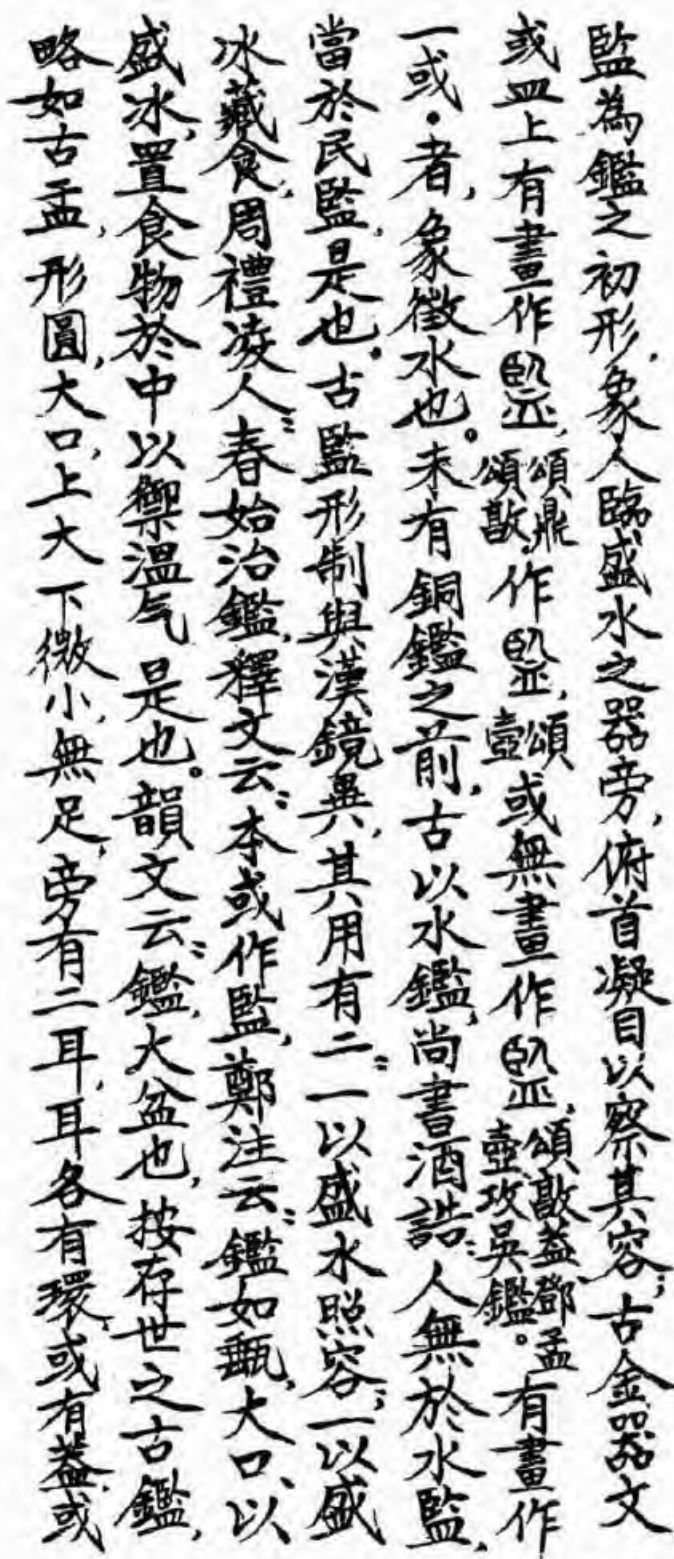 監為鑑之初形，象人臨盛水之器旁，俯首凝目以察其容；古金器文
或皿上有畫作，頌鼎頌𣪘，作，頌壺或無畫作，頌𣪘蓋鄧孟壺攻吳鑑。有畫作
一或・者，象徵水也。未有銅鑑之前，古以水鑑，尚書酒誥：人無於水監，
當於民監，是也。古監形制與漢鏡異，其用有二：一以盛水照容；一以盛
冰藏食，周禮凌人：春始治鑑，釋文云：本或作監，鄭注云：鑑如甀，大口，以
盛冰，置食物於中以禦溫气是也。韻文云：鑑，大盆也，按存世之古鑑，
略如古盂，形圓，大口，上大下微小，無足，旁有二耳，耳各有環，或有蓋，或